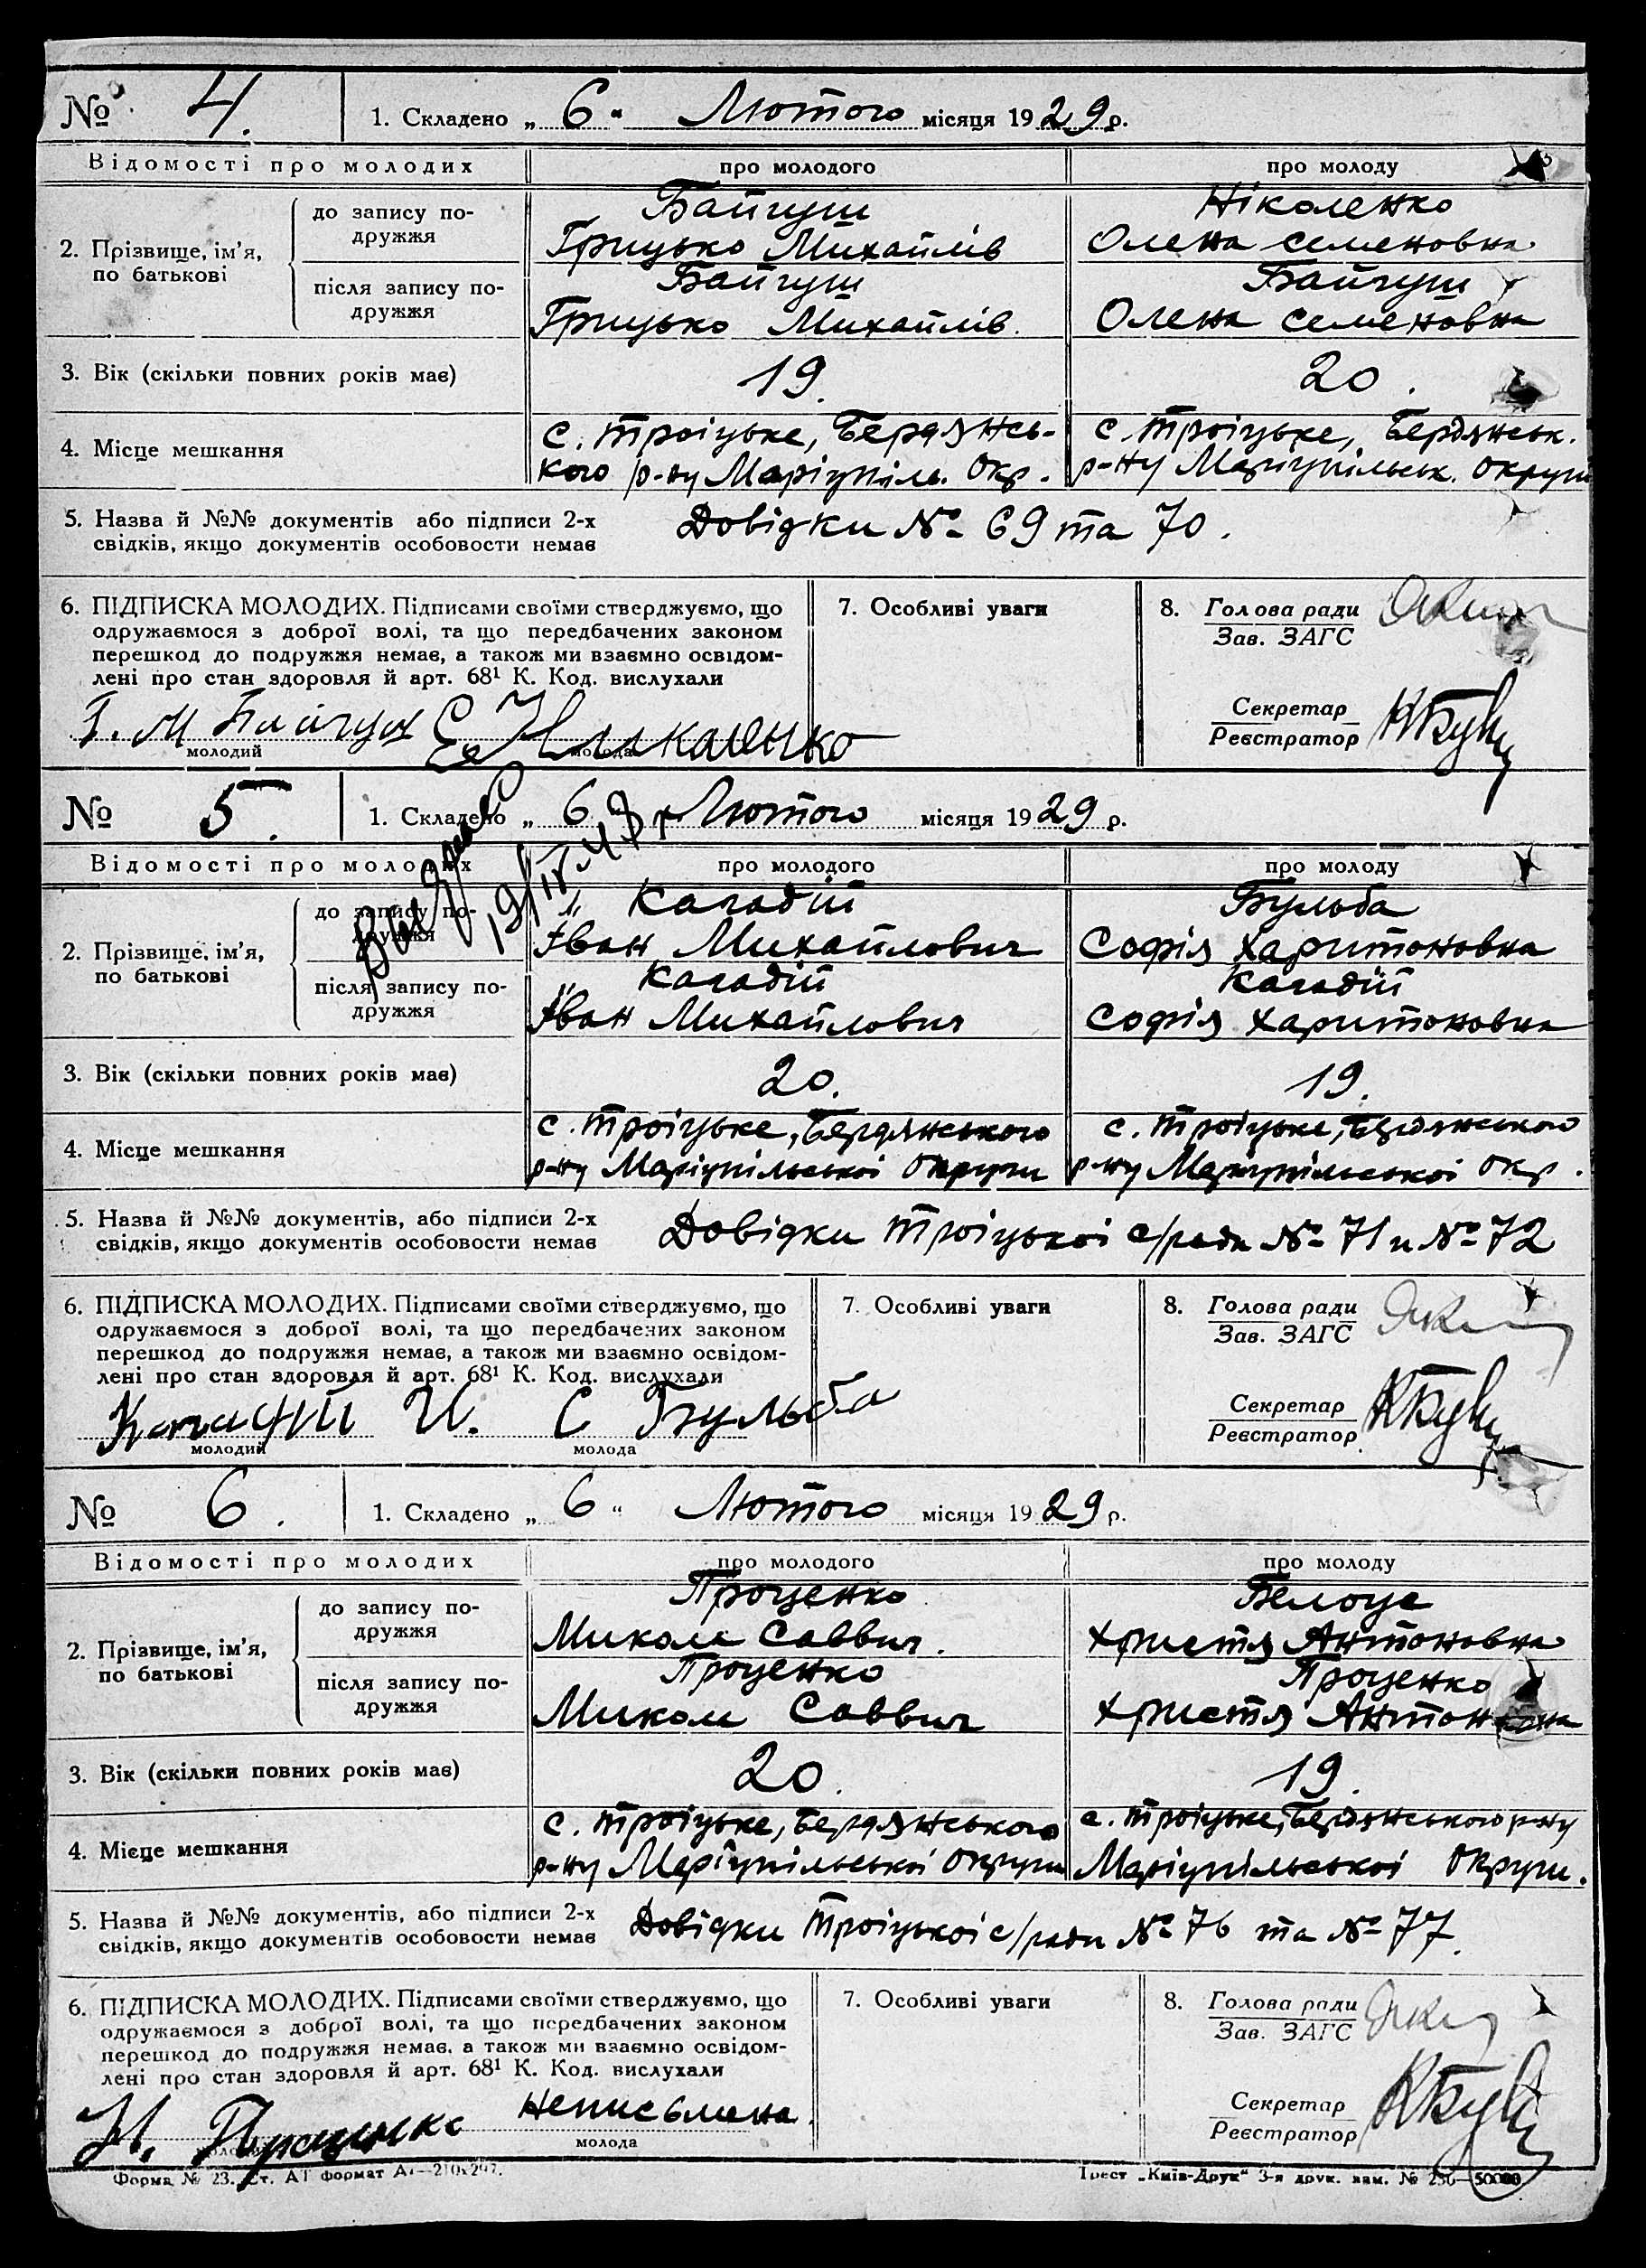 № 4. 1. Складено „ 6 " Лютого місяця 1929 р.
Відомості про молодих про молодого про молоду
2. Прізвище, ім'я, по батькові
до запису по-
дружжя
Байгуш
Грицько Михайлів
Ніколенко
Олена Семеновна
після запису по-
дружжя
Байгуш
Грицько Михайлів.
Байгуш
Олена Семеновна
3. Вік (скільки повних років має) 19. 20.
4. Місце мешкання
с. Троіцьке, Бердянсь-
кого р-ну Маріупіль. Окр.
с. Троіцьке, Бердянськ.
р-ну Маріупільськ. Округи
5. Назва й №№ документів або підписи 2-х
свідків, якщо документів особовости немає
Довідки № 69 та 70.
6. ПІДПИСКА МОЛОДИХ. Підписами своїми стверджуємо, що
одружаємося з доброї волі, та що передбачених законом
перешкод до подружжя немає, а також ми взаємно освідом-
лені про стан здоровля й арт. 68¹ К. Код. вислухали
Г. М Байгуш
молодий молода
7. Особливі уваги
8. Голова ради
Зав. ЗАГС
Секретар
Реєстратор
№ 5. 1. Складено „ 6 Лютого місяця 1929 р.
19/IV-47 г
Відомості про молодих про молодого про молоду
2. Прізвище, ім'я, по батькові
до запису по-
дружжя
Кагадій
Іван Михайлович
Бульба
Софія Харитоновна
після запису по-
дружжя
Кагадій
Іван Михайлович
Кагадій
Софія Харитоновна
3. Вік (скільки повних років має) 20. 19.
4. Місце мешкання
с. Троіцьке, Бердянського
р-ну Маріупільськоі Округи
с. Троіцьке, Бердянського
р-ну Маріупільськоі Окр.
5. Назва й №№ документів, або підписи 2-х
свідків, якщо документів особовости немає
Довідки Троіцькоі с/ради № 71 и № 72
6. ПІДПИСКА МОЛОДИХ. Підписами своїми стверджуємо, що
одружаємося з доброї волі, та що передбачених законом
перешкод до подружжя немає, а також ми взаємно освідом-
лені про стан здоровля й арт. 68¹ К. Код. вислухали
Кагадий И. С Бульба
молодий молода
7. Особливі уваги
8. Голова ради
Зав. ЗАГС
Секретар
Реєстратор
№ 6. 1. Складено „ 6 " Лютого місяця 1929 р.
Відомості про молодих про молодого про молоду
2. Прізвище, ім'я, по батькові
до запису по-
дружжя
Проценко
Микола Саввич.
Христя Антоновна
після запису по-
дружжя
Проценко
Микола Саввич
Проценко
Христя Антоновна
3. Вік (скільки повних років має) 20. 19.
4. Місце мешкання
с. Троіцьке, Бердянського
р-ну Маріупільськоі Округи
с. Троіцьке, Бердянського р-ну
Маріупільськоі Округи.
5. Назва й №№ документів, або підписи 2-х
свідків, якщо документів особовости немає
Довідки Троіцькоі с/ради № 76 та № 77.
6. ПІДПИСКА МОЛОДИХ. Підписами своїми стверджуємо, що
одружаємося з доброї волі, та що передбачених законом
перешкод до подружжя немає, а також ми взаємно освідом-
лені про стан здоровля й арт. 68¹ К. Код. вислухали
Неписьмена.
молода
7. Особливі уваги
8. Голова ради
Зав. ЗАГС
Секретар
Реєстратор
Форма № 23. Ст. АТ формат А₄—210x297.
Трест „Київ-Друк" 3-я друк. зам. №